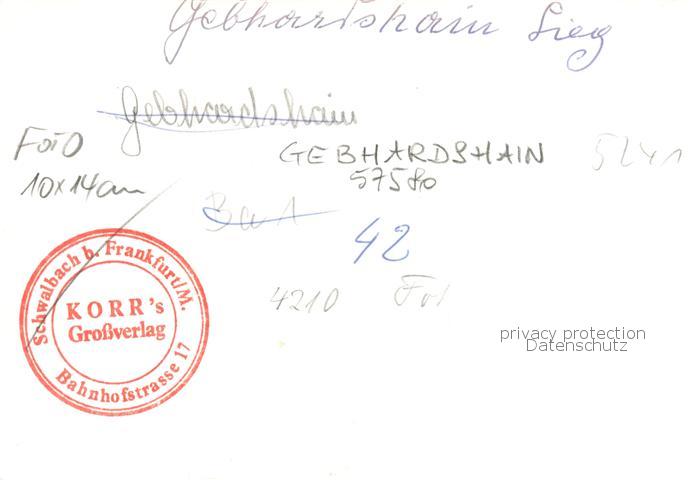 Gebhardshain Sieg
Gebhardshain
FOTO
GEBHARDSHAIN
5241
10x14cm
57580
42
4210 Fot
Schwalbach b. Frankfurt/M.
KORR's
Großverlag
Bahnhofstrasse 17
privacy protection
Datenschutz